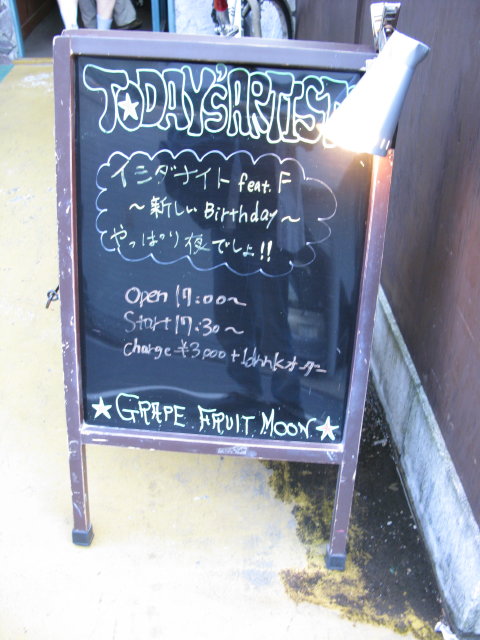 TODAY'S ARTIST
イシダナイト feat. F
〜新しい Birthday〜
やっぱり夜でしょ!!
Open 17:00〜
Start 17:30〜
charge ¥3000+1drinkオーダー
★GRAPE FRUIT MOON★